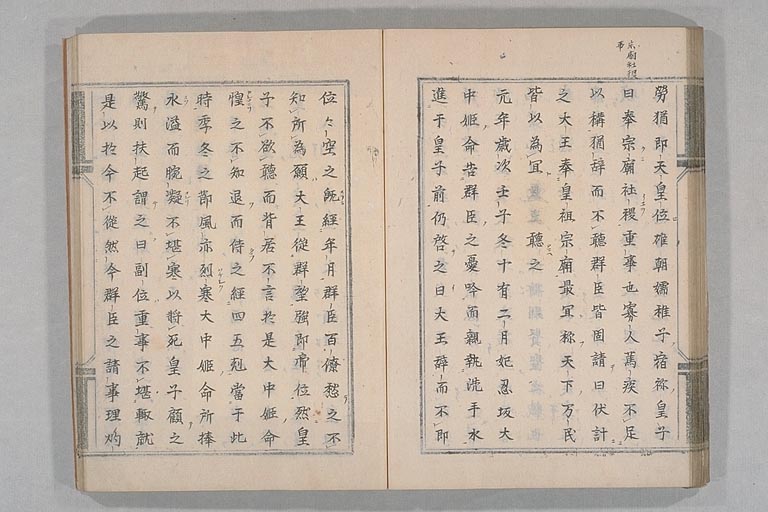 宗廟社稷
勞猶即天皇位雄朝嬬稚子宿祢皇子
曰奉宗廟社稷重事也寡人篤疾不足
以構猶辞而不聽群臣皆固請曰伏計
之大王奉皇祖宗廟最冝祢天下万民
皆以為冝聽之
元年歳次壬子冬十有二月妃忍坂大
中姫命苦群臣之憂吟而親執洗手水
進于皇子前仍啓之曰大王辞而不即
位々空之既經年月群臣百僚愁之不
知所為願大王從群望強即帝位然皇
子不欲聽而背居不言於是大中姫命
惶之不知退而侍之經四五剋當于此
時季冬之節風亦烈寒大中姫命所捧
水溢而腕凝不堪寒以將死皇子顧之
驚則扶起謂之曰副位重事不堪輙就
是以於今不從然今群臣之請事理灼